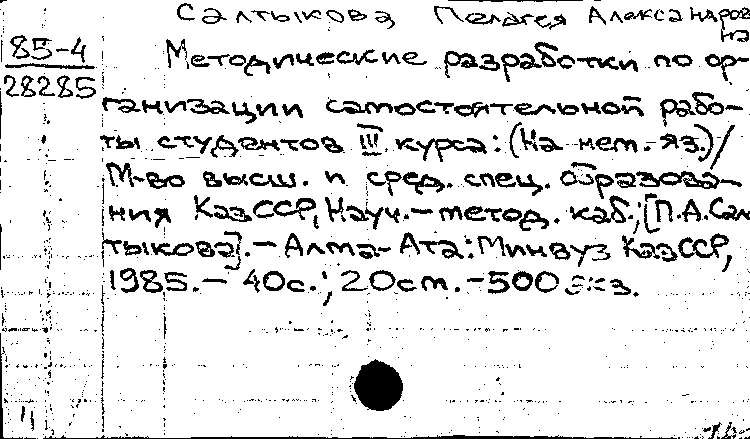 Салтыкова Пелагея Александров
на
85-4
28285
Методические разработки по ор-
ганизации самостоятельной рабо-
ты студентов III курса: (На нем. яз.) /
М-во высш. и сред. спец. образова-
ния КазССР, Науч.-метод. каб.; [П.А. Сал
тыкова]. - Алма-Ата: Минвуз КазССР,
1985. - 40с.; 20см. - 500 экз.